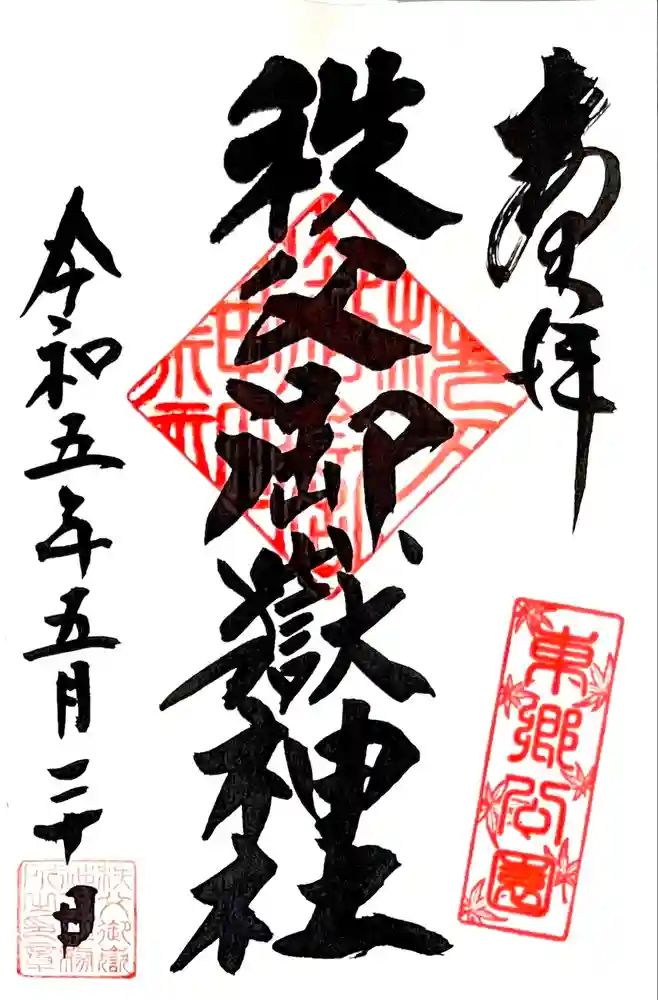 奉拝
東郷公園
秩父御嶽神社
令和五年五月二十日